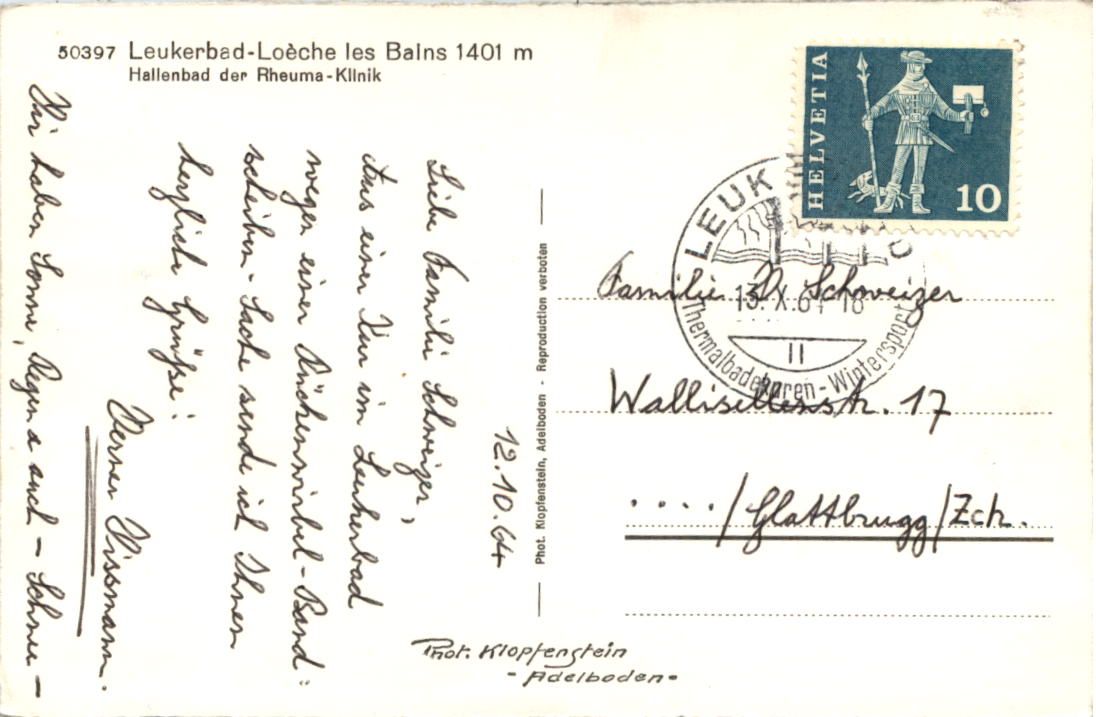 50397 Leukerbad-Loèche les Bains 1401 m
Hallenbad der Rheuma-Klinik
12.10.64
Liebe Familie Schweizer,
Aus einer Kur im Leukerbad
wegen einer Rückenwirbel-Band-
scheiben-Sache sende ich Ihnen
herzliche Grüsse!
Werner
Wir haben Sonne, Regen & auch - Schnee -
Phot. Klopfenstein, Adelboden - Reproduction verboten
Phot. Klopfenstein
- Adelboden -
HELVETIA
10
LEUK
13. X. 64 - 18
II
Thermalbadekuren - Wintersport
Familie D. Schweizer
Wallisellenstr. 17
..../Glattbrugg/Zch.